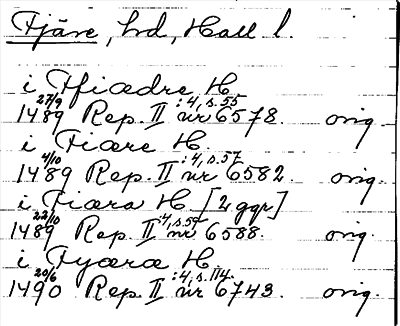 Fjäre, hd, Hall l.
i Ffiædre H
1489 27/9 Rep. II :4, s.55 nr 6578. orig.
i Fiære H.
1489 4/10 Rep. II :4, s.57 nr 6582. orig.
i Fiæra H [2 ggr]
1489 22/10 Rep. II :4, s.59 nr 6588. orig.
i Fyæræ H.
1490 20/6 Rep. II :4, s.114 nr 6743. orig.